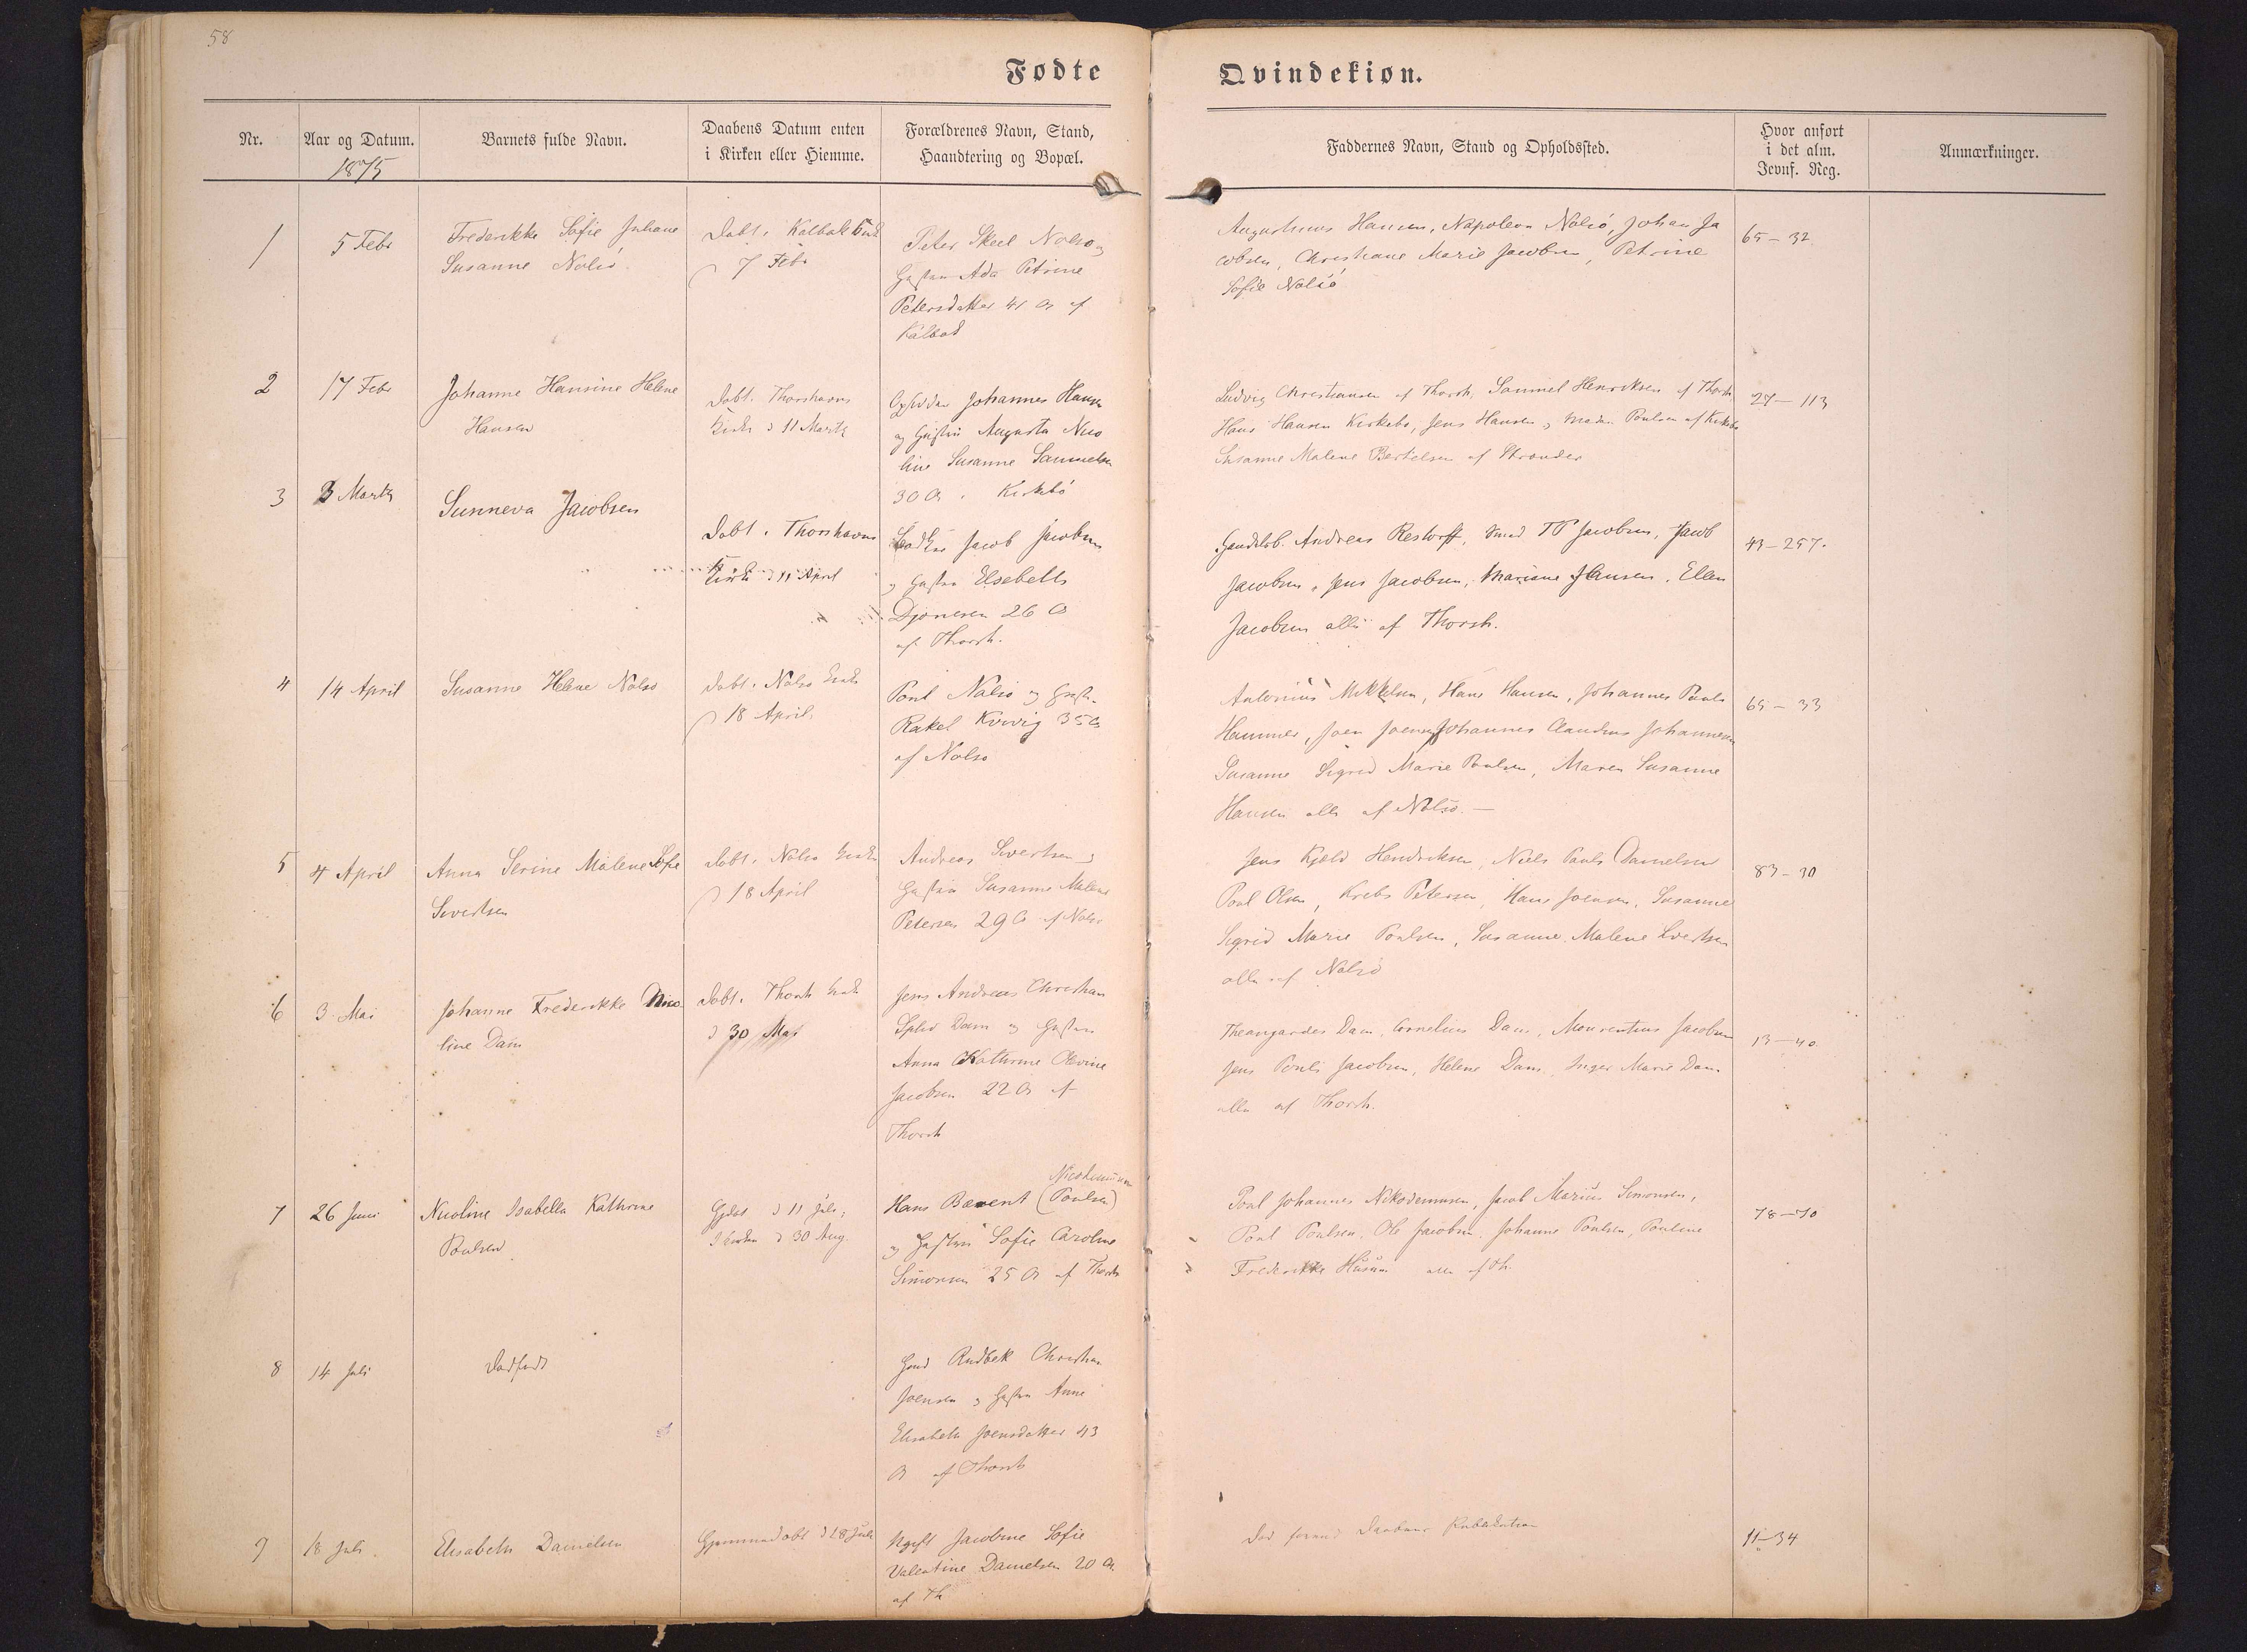 58
Fødte
Qvindekiøn.
Nr.
Aar og Datum.
1875
Barnets fulde Navn.
Daabens Datum enten
i Kirken eller Hiemme.
Forældrenes Navn, Stand,
Haandtering og Bopæl.
Faddernes Navn, Stand og Opholdssted.
Hvor anført
i det alm.
Jevnf. Reg.
Anmærkninger.
1
5 Febr
Frederikke Sofie Juliane
Susanne Nolsö
Döbt i Kalbak Kirke
7 Febr
Peter Skeel Nolsö og
Hustru Ada Petrine
Petersdatter 41 A af
Kalbak
Augustinus Hansen, Napoleon Nolsö, Johan Ja
cobsen, Christiane Marie Jacobsen, Petrine
Sofie Nolsö
65 – 32
2
17 Febr
Johanne Hansine Helene
Hansen
Döbt i Thorshavns
Kirke d 11 Marts
Johannes Hansen
og Hustru Augusta Nico
line Susanne Samuelsen
30 A i Kirkebö
Ludvig Christiansen af Thorsh, Sammel Henriksen af Thorsh
Hans Hansen Kirkebö, Jens Hansen og Maren Poulsen af Kirkebö
Susanne Malene Bertelsen af Strender
27 – 113
3
3 Marts
Sunneva Jacobsen
Döbt i Thorshavns
Kirke d 11 April
Jacob Jacobsen
og Hustru Elsebeth
Djonesen 26 A
af Thorsh.
Handelsb. Andreas Restorff, Smed TP Jacobsen, Jacob
Jacobsen, Jens Jacobsen, Mariane Hansen, Ellen
Jacobsen alle af Thorsh.
43 – 257.
4
14 April
Susanne Helene Nolsö
Döbt i Nolsö Kirke
d 18 April
Poul Nolsö og Hustr.
Rakel Kvivig 35 A
af Nolsö
Antonius Mikkelsen, Hans Hansen, Johannes Pauli
Hammer, Joen Joensen, Johannes Claudius Johannesen
Susanne Sigrid Marie Poulsen, Maren Susanne
Hansen alle af Nolsö. –
65 – 33
5
4 April
Anna Serine Malene Sofie
Sivertsen
Döbt i Nolsö Kirke
d 18 April
Andreas Sivertsen og
Hustru Susanne Malene
Petersen 29 A af Nolsö
Jens Kjeld Hendriksen, Niels Pauli Danielsen
Poul Olsen, Krebs Petersen, Hans Joensen, Susanne
Sigrid Marie Poulsen, Susanne Malene Sivertsen
alle af Nolsö
83 – 30
6
3 Mai
Johanne Frederikke Nico
line Dam
Döbt i Thorsh Kirke
d 30 Mai
Jens Andreas Christian
Dam og Hustru
Anna Kathrine Olevine
Jacobsen 22 A af
Thorsh
Dam, Cornelius Dam, Mourentius Jacobsen
Jens Pouli Jacobsen, Helene Dam, Inger Marie Dam
alle af Thorsh.
13 – 40.
7
26 Juni
Nicoline Isabella Kathrine
Poulsen
Hjdöbt d 11 Juli,
i Kirken d 30 Aug.
Nicodemusen
Hans Barent (Poulsen)
og Hustru Sofie Caroline
Simonsen 25 A af Thorsh
Poul Johannes Nikodemusen, Jacob Marius Simonsen,
Poul Poulsen, Ole Jacobsen, Johanne Poulsen, Pouline
Frederikke Husum alle af Th.
78 – 10
8
14 Juli
Dødfødt
Rudbek Christian
Joensen og Hustru Anne
Elisabeth Joensdatter 43
A af Thorsh
9
18 Juli
Elisabeth Danielsen
Hjemmedöbt d 28 Juli
Ugift Jacobine Sofie
Valentine Danielsen 20 A.
af Th
Död forend Daabens Publikation
11 – 34